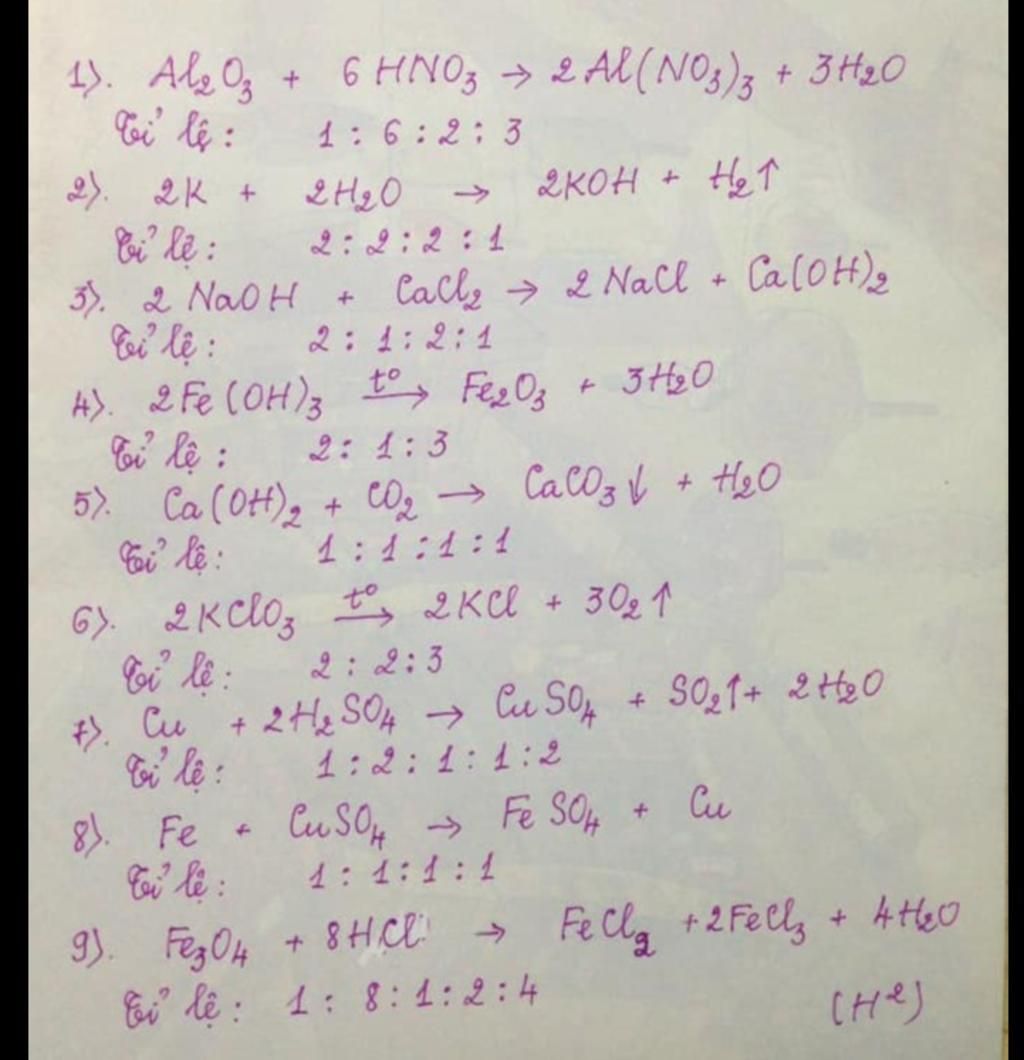 1). Al₂O₃ + 6 HNO₃ → 2 Al(NO₃)₃ + 3H₂O
Tỉ lệ : 1 : 6 : 2 : 3
2). 2K + 2H₂O → 2KOH + H₂↑
Tỉ lệ : 2 : 2 : 2 : 1
3). 2 NaOH + CaCl₂ → 2 NaCl + Ca(OH)₂
Tỉ lệ : 2 : 1 : 2 : 1
4). 2Fe(OH)₃ t° → Fe₂O₃ + 3H₂O
Tỉ lệ : 2 : 1 : 3
5). Ca(OH)₂ + CO₂ → CaCO₃↓ + H₂O
Tỉ lệ : 1 : 1 : 1 : 1
6). 2KClO₃ t° → 2KCl + 3O₂↑
Tỉ lệ : 2 : 2 : 3
7). Cu + 2H₂SO₄ → CuSO₄ + SO₂↑ + 2H₂O
Tỉ lệ : 1 : 2 : 1 : 1 : 2
8). Fe + CuSO₄ → FeSO₄ + Cu
Tỉ lệ : 1 : 1 : 1 : 1
9). Fe₃O₄ + 8HCl → FeCl₂ + 2FeCl₃ + 4H₂O
Tỉ lệ : 1 : 8 : 1 : 2 : 4 (H²)